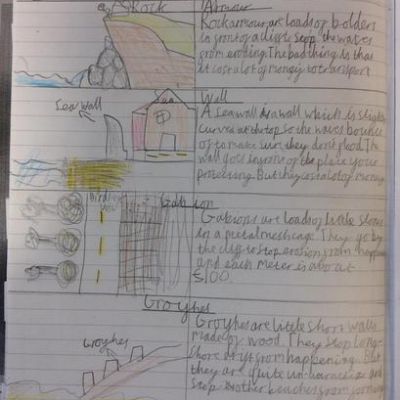 Rock Armour
Rock armour are loads of bolders
in front of a cliff to stop the water
from eroding. The bad thing is that
it cost a lot of money to transport
Sea wall
Wall
A Seawall is a wall which is slightly
curve at the top so the waves bounce
of to make sure they dont flood. The
wall goes infront of the place your
protecting. But they cost a lot of money
Gabion
Gabions are loads of little stones
in a metal mesh cage. They go by
the cliff to stop erosion from happening
and each meter is about
£100.
Groynes
Groynes
Groynes are little short walls
made of wood. They stop long-
shore drift from happening. But
they are quite un-
stop other beaches from